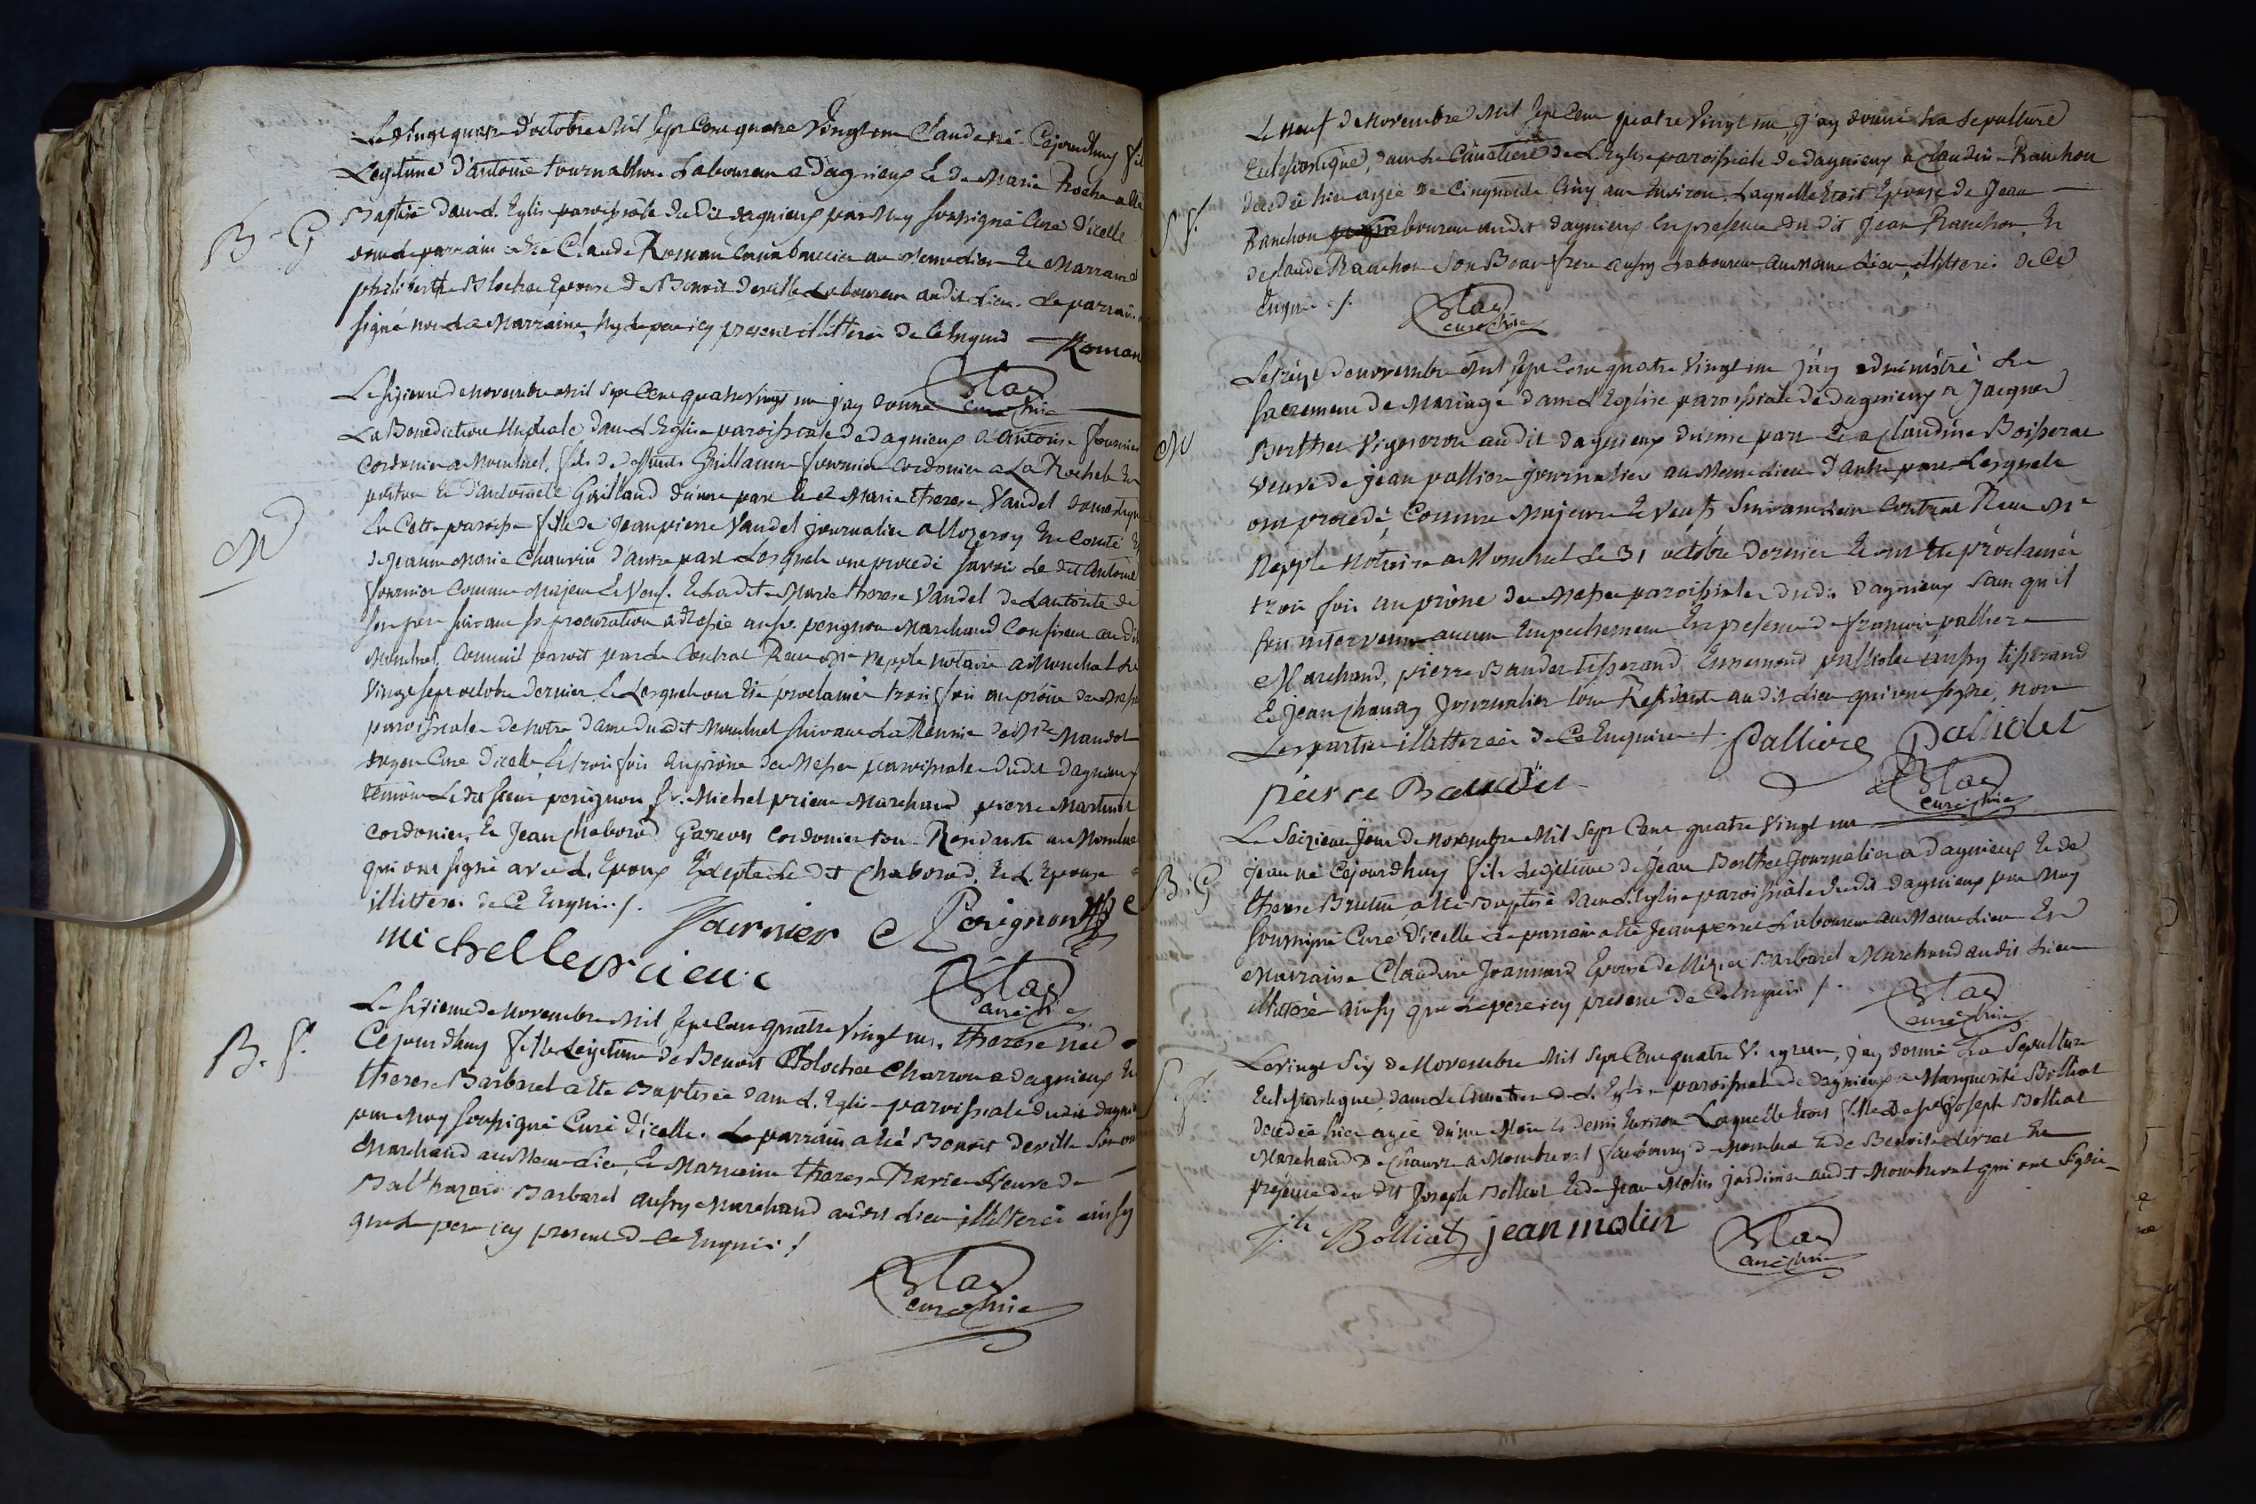 Le vingt quatre d'octobre Mil Sept Cent quatre Vingt un Claude né Cejourdhuy fils
Legitime d'antoine tournablure Laboureur a Dagnieux Et de Marie Roche a été
B. G. Baptisé dans L'Eglise paroissiale du dit dagnieux par Moy soussigné Curé d'icelle
son parrain été Claude Roman au meme Lieu Et Marraine
philiberthe Blochet Epouse de Benoit Deville Laboureur audit Lieu. Le parrain a
signé non La Marraine, Ny Le pere icy present illitteré de Ce Enquis Roman
Blac
curé
Le sixieme de novembre Mil Sept Cent quatre vingt un j'ay donné
La Benediction Nuptiale dans L'Eglise paroissiale de dagnieux a Antoine fournier
M Cordonier a Montluel, fils de deffunts Guillaume fournier Cordonier a La Rochelle En
poitou Et D'antoinette Guilland d'une part Et a Marie therese Vandel domestique
En Cette paroisse fille de Jean pierre Vandel journalier a Nozeroy En Comté Et
de Jeanne Marie Chauvin d'autre part Lesquels ont procedé savoir Le dit Antoine
fournier Comme Majeur Et Veuf. Et La dite Marie therese Vandel de L'autorité de
son pere suivant sa procuration adressée au sr. perignon Marchand Confiseur au dit
Montluel, Comme il paroit par Le Contrat Recu Me Nepple notaire a Montluel Le
vingt sept octobre dernier Et Lesquels ont été proclamés trois fois au prône des Messes
paroissiales de Notre dame du dit Montluel suivant La Remise de Mre Mandot
doyen Curé D'icelle, Et trois fois au prône des Messes paroissiales dudit dagnieux
temoins Le dit sieur perignon sr. Michel prieur Marchand pierre Martinet
Cordonier, Et Jean Chaborod Garcon Cordonier tous Residants au Montluel
qui ont signé avec L'Epoux Excepté Le dit Chaborod, Et L'Epouse
illitterés de Ce Enquis /.
fournier Perignon
michelleprieur
Blac
curé
Le sixieme de Novembre Mil Sept Cent quatre Vingt un. therese née
B. f. Cejourdhuy fille Legitime de Benoit Blochet Charron a dagnieux Et
therese Barbaret a été Baptisée dans L'Eglise paroissiale dudit dagnieux
par Moy soussigné Curé d'icelle. Le parrain a été Benoit Deville son oncle
Marchand au Meme Lieu, Et Marraine therese Ravier Veuve de
Balthazard Barbaret aussy Marchand audit Lieu illitterés ainsy
que Le pere icy present de Ce Enquis /
Blac
curé
Le neuf de Novembre Mil Sept Cent quatre vingt un j'ay donné La Sepulture
Ecclesiastique, dans Le Cimetiere de L'Eglise paroissiale de dagnieux a Claudine Ranchon
S. f. decedée hier agée de Cinquante Cinq ans Environ. Laquelle Etoit Epouse de Jean
Ranchon Laboureur audit dagnieux En presence du dit Jean Ranchon Et
de Claude Ranchon Son Beau frere aussy Laboureur au meme Lieu illitterés de Ce
Enquis /.
Blac
curé
Le seize de novembre Mil Sept Cent quatre Vingt un j'ay administré Le
Sacrement de Mariage dans L'Eglise paroissiale de dagnieux a Jacques
M Berthet Vigneron au dit dagnieux d'une part Et a Claudine Boisserat
Veuve de Jean pallion journalier au Meme Lieu d'autre part Lesquels
ont procedé Comme Majeurs Et Veufs Suivant leur Contrat Recu Me
Nepple Notaire a Montluel Le 31 octobre dernier Et ont été proclamés
trois fois au prône des Messes paroissiales du dit Dagnieux sans qu'il
soit intervenu aucun Empechement En presence de francois palliere
Marchand, pierre Baudet tisserand, Ennemond palliolet aussy tisserand
Et Jean Chanay Journalier tous Residants au dit Lieu qui ont signé, non
Les parties illitterées de Ce Enquises /.
Palliere Palliolet
pierre Baudet
Blac
curé
Le Seizieme jour de Novembre Mil Sept Cent quatre Vingt un
B. G. Jean né Cejourdhuy fils Legitime de Jean Berthet Journalier a dagnieux Et de
therese Brutin, a été Baptisé dans L'Eglise paroissiale dudit dagnieux par Moy
soussigné Curé d'icelle Le parrain a été Jean perret Laboureur au Meme Lieu Et
Marraine Claudine Joannard Epouse de Barbaret Marchand audit Lieu
illitterés ainsy que Le pere icy present de Ce Enquis /.
Blac
curé
Le vingt Six de Novembre Mil Sept Cent quatre Vingt un, j'ay donné La Sepulture
S. f. Ecclesiastique, dans Le Cimetiere de L'Eglise paroissiale de dagnieux a Marguerite Bolliat
decedée hier agée d'un Mois Et demi Environ Laquelle Etoit fille de sr Joseph Bolliat
Marchand de Chanvre a Montluel Et de Benoite Livrat En
presence du dit Joseph Bolliat Et de Jean Molin jardinier audit qui ont Signé
jh Bolliat jean molin
Blac
curé